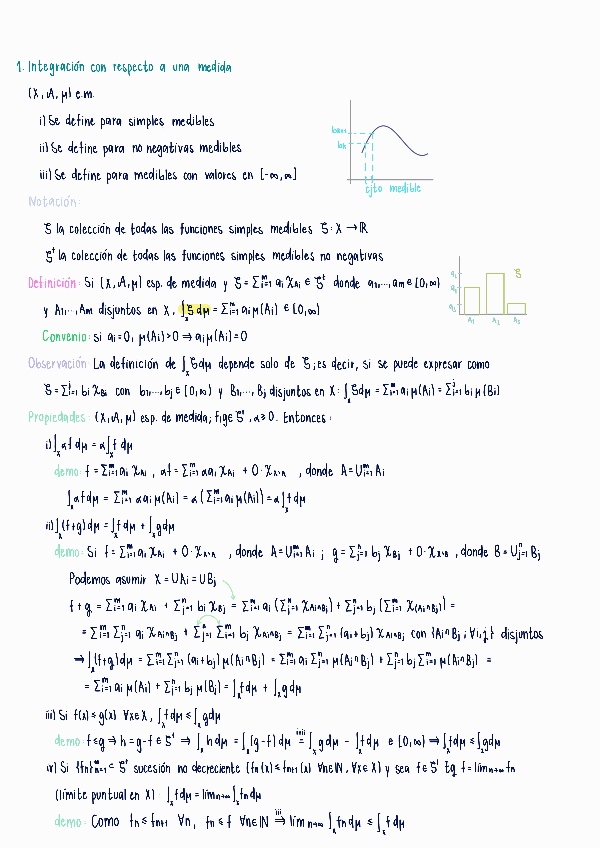 1. Integración con respecto a una medida
(X, A, μ) e.m.
i) Se define para simples medibles
ii) Se define para no negativas medibles
iii) Se define para medibles con valores en [-∞,∞]
bk+1
bk
cjto medible
Notación:
ξ la colección de todas las funciones simples medibles ξ: X → ℝ
ξ⁺ la colección de todas las funciones simples medibles no negativas
Definición: Si (X, A, μ) esp. de medida y ξ = Σᵢ₌₁ᵐ aᵢ χ_Aᵢ ∈ ξ⁺ donde a₁,..., am ∈ [0,∞)
y A₁,..., Am disjuntos en X, ∫_X ξ dμ = Σᵢ₌₁ᵐ aᵢ μ(Aᵢ) ∈ [0,∞)
A₁ A₂ A₃
ξ
Convenio: si aᵢ=0, μ(Aᵢ)>0 ⇒ aᵢ μ(Aᵢ)=0
Observación: La definición de ∫_X ξdμ depende solo de ξ; es decir, si se puede expresar como
ξ = Σᵢ₌₁ʲ bᵢ χ_Bᵢ con b₁,..., bj ∈ [0,∞) y B₁,..., Bj disjuntos en X: ∫_X ξdμ = Σᵢ₌₁ᵐ aᵢ μ(Aᵢ) = Σᵢ₌₁ʲ bᵢ μ(Bᵢ)
Propiedades: (X, A, μ) esp. de medida; f,g ∈ ξ⁺, α ≥ 0. Entonces:
i) ∫_X αf dμ = α∫_X f dμ
demo: f = Σᵢ₌₁ᵐ aᵢ χ_Aᵢ, αf = Σᵢ₌₁ᵐ αaᵢ χ_Aᵢ + 0·χ_X∖A, donde A = Uᵢ₌₁ᵐ Aᵢ
∫_X αf dμ = Σᵢ₌₁ᵐ αaᵢ μ(Aᵢ) = α(Σᵢ₌₁ᵐ aᵢ μ(Aᵢ)) = α∫_X f dμ
ii) ∫_X (f+g) dμ = ∫_X f dμ + ∫_X g dμ
demo: Si f = Σᵢ₌₁ᵐ aᵢ χ_Aᵢ + 0·χ_X∖A, donde A = Uᵢ₌₁ᵐ Aᵢ; g = Σⱼ₌₁ⁿ bj χ_Bj + 0·χ_X∖B, donde B = Uⱼ₌₁ⁿ Bj
Podemos asumir X = UAᵢ = UBj
f+g = Σᵢ₌₁ᵐ aᵢ χ_Aᵢ + Σⱼ₌₁ⁿ bj χ_Bj = Σᵢ₌₁ᵐ aᵢ (Σⱼ₌₁ⁿ χ_Aᵢ∩Bj) + Σⱼ₌₁ⁿ bj (Σᵢ₌₁ᵐ χ_(Aᵢ∩Bj)) =
= Σᵢ₌₁ᵐ Σⱼ₌₁ⁿ aᵢ χ_Aᵢ∩Bj + Σⱼ₌₁ⁿ Σᵢ₌₁ᵐ bj χ_Aᵢ∩Bj = Σᵢ₌₁ᵐ Σⱼ₌₁ⁿ (aᵢ+bj) χ_Aᵢ∩Bj con {Aᵢ∩Bj; ∀i,j} disjuntos
⇒ ∫_X (f+g) dμ = Σᵢ₌₁ᵐ Σⱼ₌₁ⁿ (aᵢ+bj) μ(Aᵢ∩Bj) = Σᵢ₌₁ᵐ aᵢ Σⱼ₌₁ⁿ μ(Aᵢ∩Bj) + Σⱼ₌₁ⁿ bj Σᵢ₌₁ᵐ μ(Aᵢ∩Bj) =
= Σᵢ₌₁ᵐ aᵢ μ(Aᵢ) + Σⱼ₌₁ⁿ bj μ(Bj) = ∫_X f dμ + ∫_X g dμ
iii) Si f(x) ≤ g(x) ∀x∈X, ∫_X f dμ ≤ ∫_X g dμ
demo: f ≤ g ⇒ h = g-f ∈ ξ⁺ ⇒ ∫_X h dμ = ∫_X (g-f) dμ = ∫_X g dμ - ∫_X f dμ ∈ [0,∞) ⇒ ∫_X f dμ ≤ ∫_X g dμ
iv) Si {fn}ₙ₌₁^∞ ⊂ ξ⁺ sucesión no decreciente (fn(x) ≤ fn+1(x) ∀n∈ℕ, ∀x∈X) y sea f ∈ ξ⁺ tq f = límn→∞ fn
(límite puntual en X) : ∫_X f dμ = límn→∞ ∫_X fn dμ
demo: Como fn ≤ fn+1 ∀n, fn ≤ f ∀n∈ℕ ⇒ⁱⁱⁱ lím n→∞ ∫_X fn dμ ≤ ∫_X f dμ